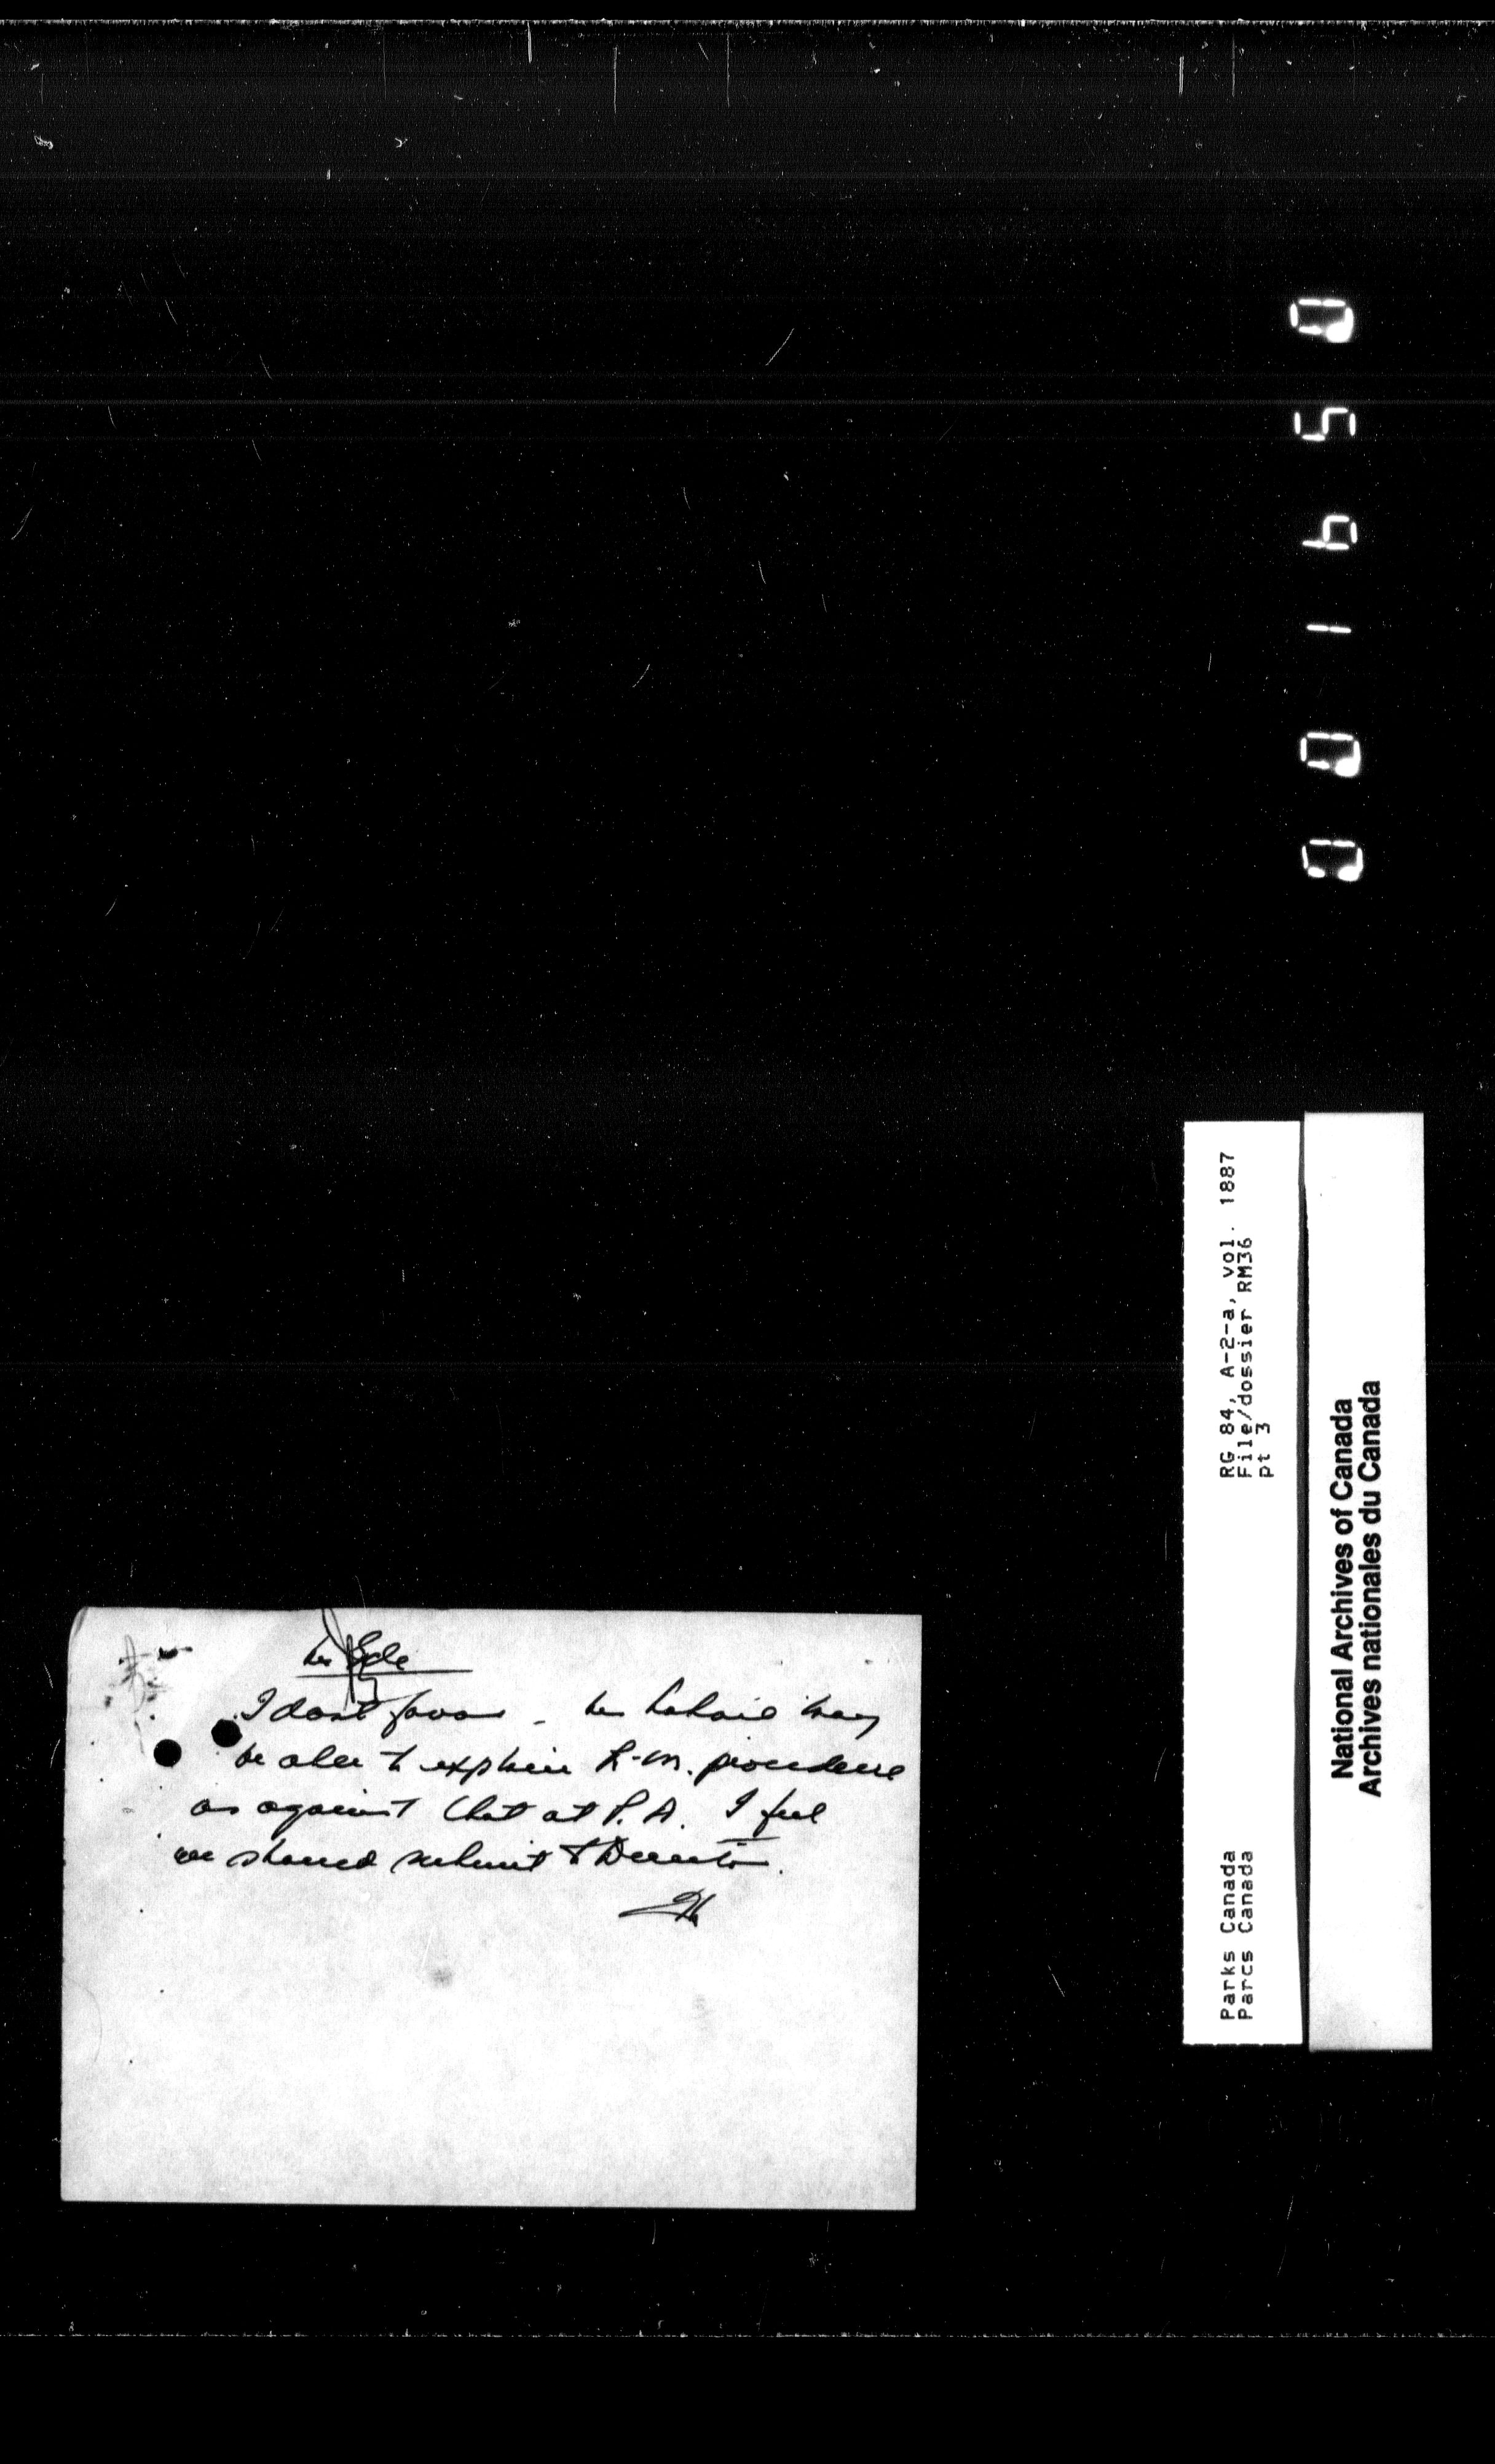 Mr Ede
I dont favor - Mr may
be able to explain R.M. procedure
as against that at P.A. I feel
we should submit to Director.
RG 84, A-2-a, vol. 1887
File/dossier RM36
pt 3
Parks Canada
Parcs Canada
National Archives of Canada
Archives nationales du Canada